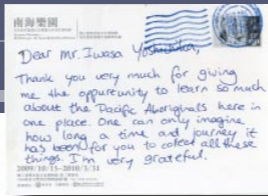 南海樂園
Dear Mr. Iwasa Yoshichika,
Thank you very much for giving
me the opportunity to learn so much
about the Pacific Aboriginals here in
one place. One can only imagine
how long a time and journey it
has been for you to collect all these
things. I'm very grateful.
2009/10/15-2010/3/31